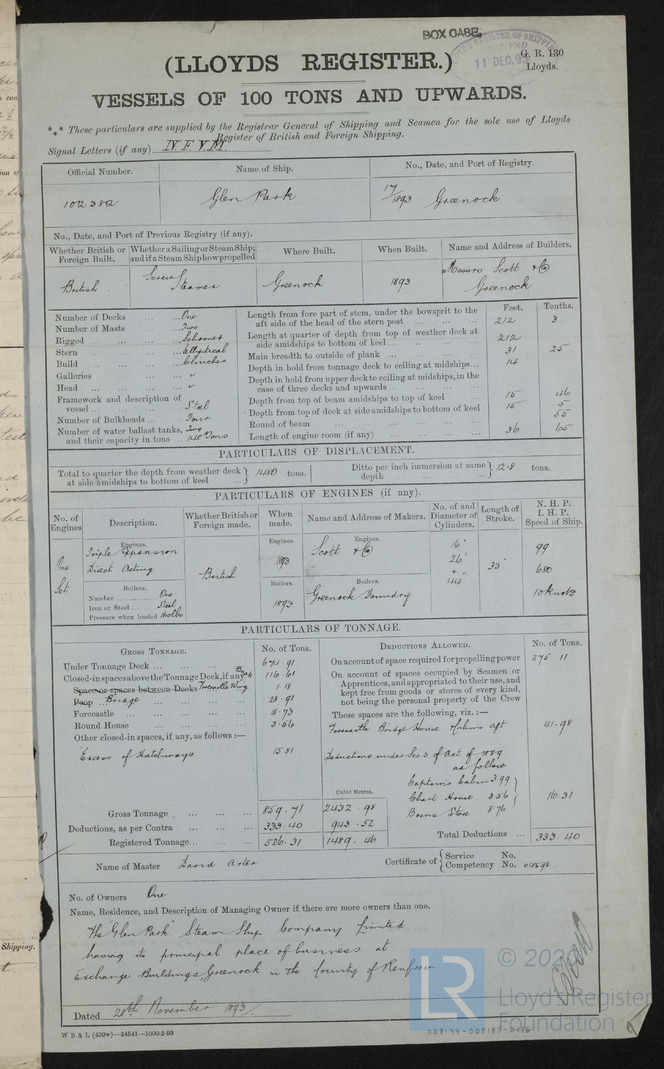 BOX CASE.
LLOYD'S REGISTER OF SHIPPING
11 DEC. 93
G. R. 130
Lloyds.
(LLOYDS REGISTER.)
VESSELS OF 100 TONS AND UPWARDS.
*** These particulars are supplied by the Registrar General of Shipping and Seamen for the sole use of Lloyds
Register of British and Foreign Shipping.
Signal Letters (if any) N.F.V.M.
Official Number. Name of Ship. No., Date, and Port of Registry.
102382 Glen Park 17/1893 Greenock
No., Date, and Port of Previous Registry (if any).
Whether British or Foreign Built. Whether a Sailing or Steam Ship; and if a Steam Ship how propelled Where Built. When Built. Name and Address of Builders.
British Screw Steamer Greenock 1893 Messrs Scott & Co Greenock
Number of Decks ... One
Number of Masts ... Two
Rigged ... Schooner
Stern ... Elliptical
Build ... Clincher
Galleries ...
Head ...
Framework and description of vessel ... Steel
Number of Bulkheads ... Four
Number of water ballast tanks, and their capacity in tons ... Two Tons
Length from fore part of stem, under the bowsprit to the aft side of the head of the stern post ... 212 3
Length at quarter of depth from top of weather deck at side amidships to bottom of keel ... 212
Main breadth to outside of plank ... 31 25
Depth in hold from tonnage deck to ceiling at midships... 14
Depth in hold from upper deck to ceiling at midships, in the case of three decks and upwards ...
Depth from top of beam amidships to top of keel 15 46
Depth from top of deck at side amidships to bottom of keel 15 5
Round of beam ... 65
Length of engine room (if any) ... 36 65
Feet. Tenths.
PARTICULARS OF DISPLACEMENT.
Total to quarter the depth from weather deck at side amidships to bottom of keel ... 1480 tons. Ditto per inch immersion at same depth ... 12.8 tons.
PARTICULARS OF ENGINES (if any).
No. of Engines Description. Whether British or Foreign made. When made. Name and Address of Makers. No. of and Diameter of Cylinders. Length of Stroke. N. H. P. I. H. P. Speed of Ship.
Engines. Engines. Engines.
One Set Triple Expansion Direct Acting British 1893 Scott & Co 16" 26" 44" 33" 99 680 10 knots
Boilers. Boilers. Boilers.
Number ... One
Iron or Steel ... Steel
Pressure when loaded 160 lbs
1893 Greenock Foundry
PARTICULARS OF TONNAGE.
GROSS TONNAGE. No. of Tons. DEDUCTIONS ALLOWED. No. of Tons.
Under Tonnage Deck ... 671 91
Closed-in spaces above the Tonnage Deck, if any Break 116 61
Space or spaces between Decks Forecastle Wing 1 18
Poop ... Bridge 28 91
Forecastle ... 18 73
Round House ... 3.56
Other closed-in spaces, if any, as follows:—
Excess of Hatchways 15 81
Gross Tonnage ... 859.71 2432.98
Deductions, as per Contra ... 333.40 943.52
Registered Tonnage... 526.31 1489.46
Cubic Metres.
On account of space required for propelling power 275 11
On account of spaces occupied by Seamen or Apprentices, and appropriated to their use, and kept free from goods or stores of every kind, not being the personal property of the Crew
These spaces are the following, viz.:—
Forecastle Bridge House Cabins aft 41.98
Deductions under Sec 3 of Act of 1889
as follow
Captain's Cabin 3.99
Chart House 3.56
Bosns Store 8.76
16.31
Total Deductions ... 333.40
Name of Master David
Certificate of Service No. Competency No.
No. of Owners One
Name, Residence, and Description of Managing Owner if there are more owners than one.
The "Glen Park" Steam Ship Company Limited
having its principal place of business at
Exchange Buildings, Greenock in the County of Renfrew
Dated 28th November 1893
W B & L (439w)—24541—1000-2-93
Shipping.
LR
Lloyd's Register
Foundation